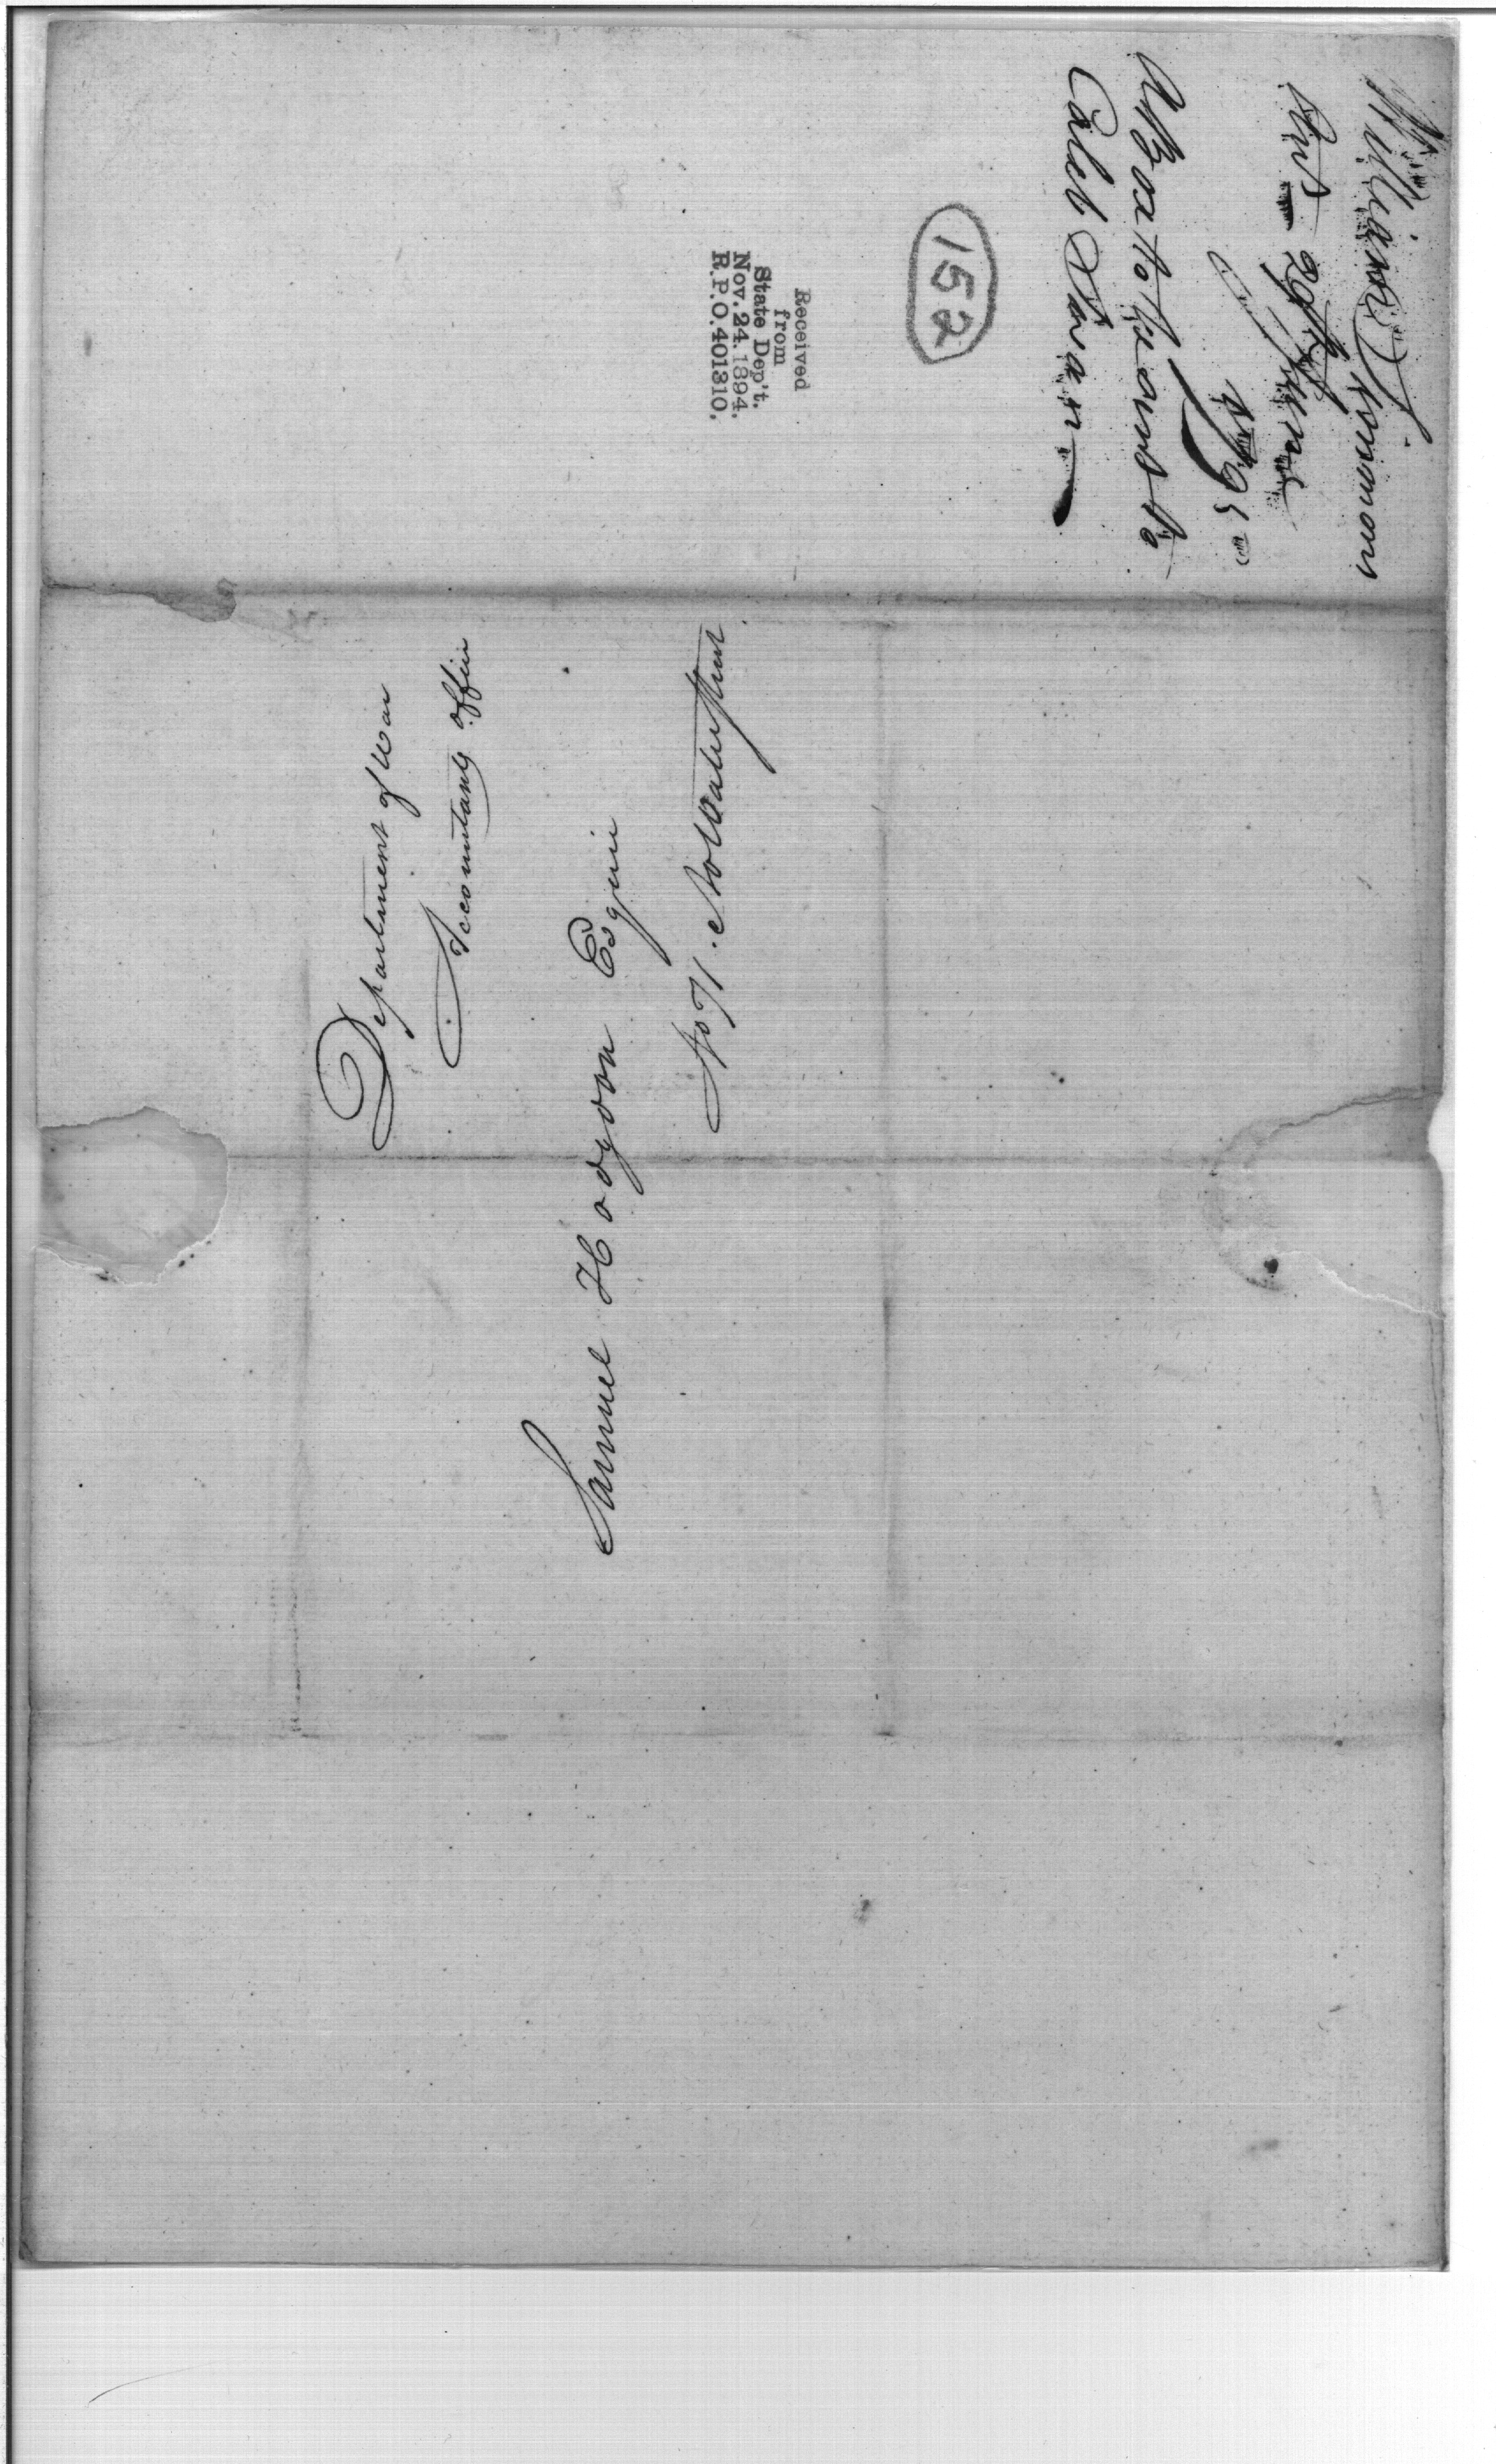 William Simmons
Recd 29th June
1795
Caleb Swan
152
Received
from
State Dep't.
Nov. 24. 1894.
R.P.O. 401310.
Department of War
Accountants Office
Samuel Hodgdon Esquire
No 71. No Water Street